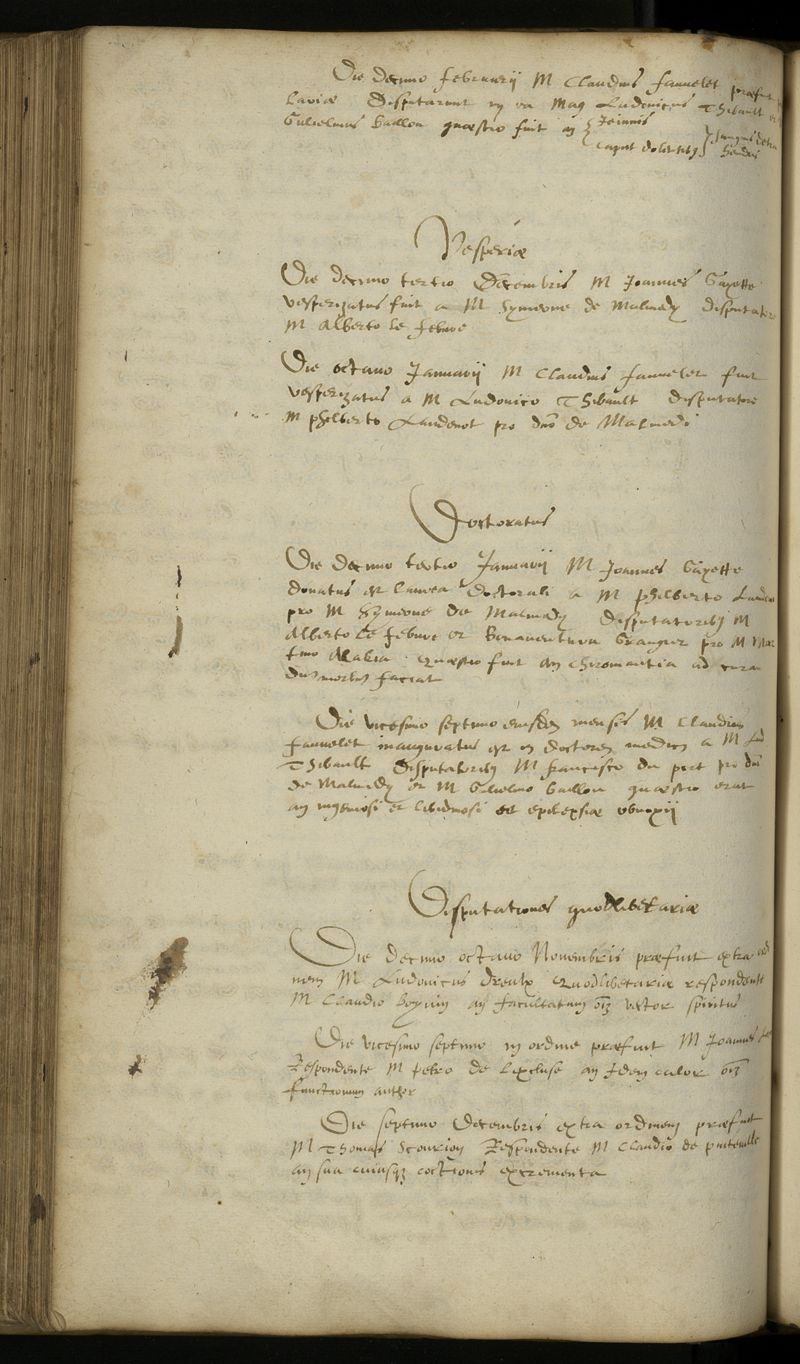 Die decimo februarij M Claudius fauvelet præfuit
lariæ disputarunt in ea Mag Ludovicus Thibault et
Gulielmus Baillou quæstio fuit an Jeiunis
caput dolentibus
Vesperiæ
Die decimo tertio Decembris M Joannes Gayette
vesperizatus fuit a M Symeone de Malmedy disputatore
M Alberto le febvre
Die octavo Januarij M Claudius fauvelet fuit
vesperizatus a M Ludovico Thibault disputatore
M philberto Laudenot pro dno de Malmedi
Doctoratus
Die decimo tertio Januarij M Joannes Gayette
donatus est laurea doctorali a M philberto
pro M Symeone de Malmedy disputatoribus M
Alberto le febvre et Bonaventura Grangier pro M Mar
tino Akakia quæstio fuit an chiromantia ad
morbos faciat
Die vicesimo septimo eiusdem mensis M Claudius
fauvelet inauguratus est in doctorem a M Lud
Thibault disputatoribus M francisco du port pro dno
de Malmedy et M Gulielmo Baillou quæstio erat
an ingeniosi et libidinosi epilepsiæ obnoxij
Disputationes quodlibetariæ
Die decimo octavo Novembris præfuit extra ordi
nem M Ludovicus quodlibetariæ respondente
M Claudio an facultatum oim vector spiritus
Die vicesimo septimo in ordine præfuit M Joannes
Respondente M petro de an Idem calor oim
functionum author
Die septimo Decembris extra ordinem præfuit
M Thomas Scourion Respondente M Claudio de
an sua cuiusque coctionis excrementa